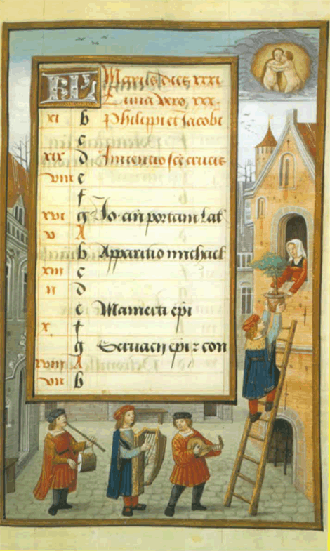 KL Maius dies xxxi
Luna vero, xxx.
xi b Philippi et Jacobi
c
xix d Inventio sce crucis
viii e
f
xvi g Io an portam lat
v A
b Apparitio michael
xiii c
ii d
e Mamerti epi
x f
g Servacii epi z con
xviii A
vii b